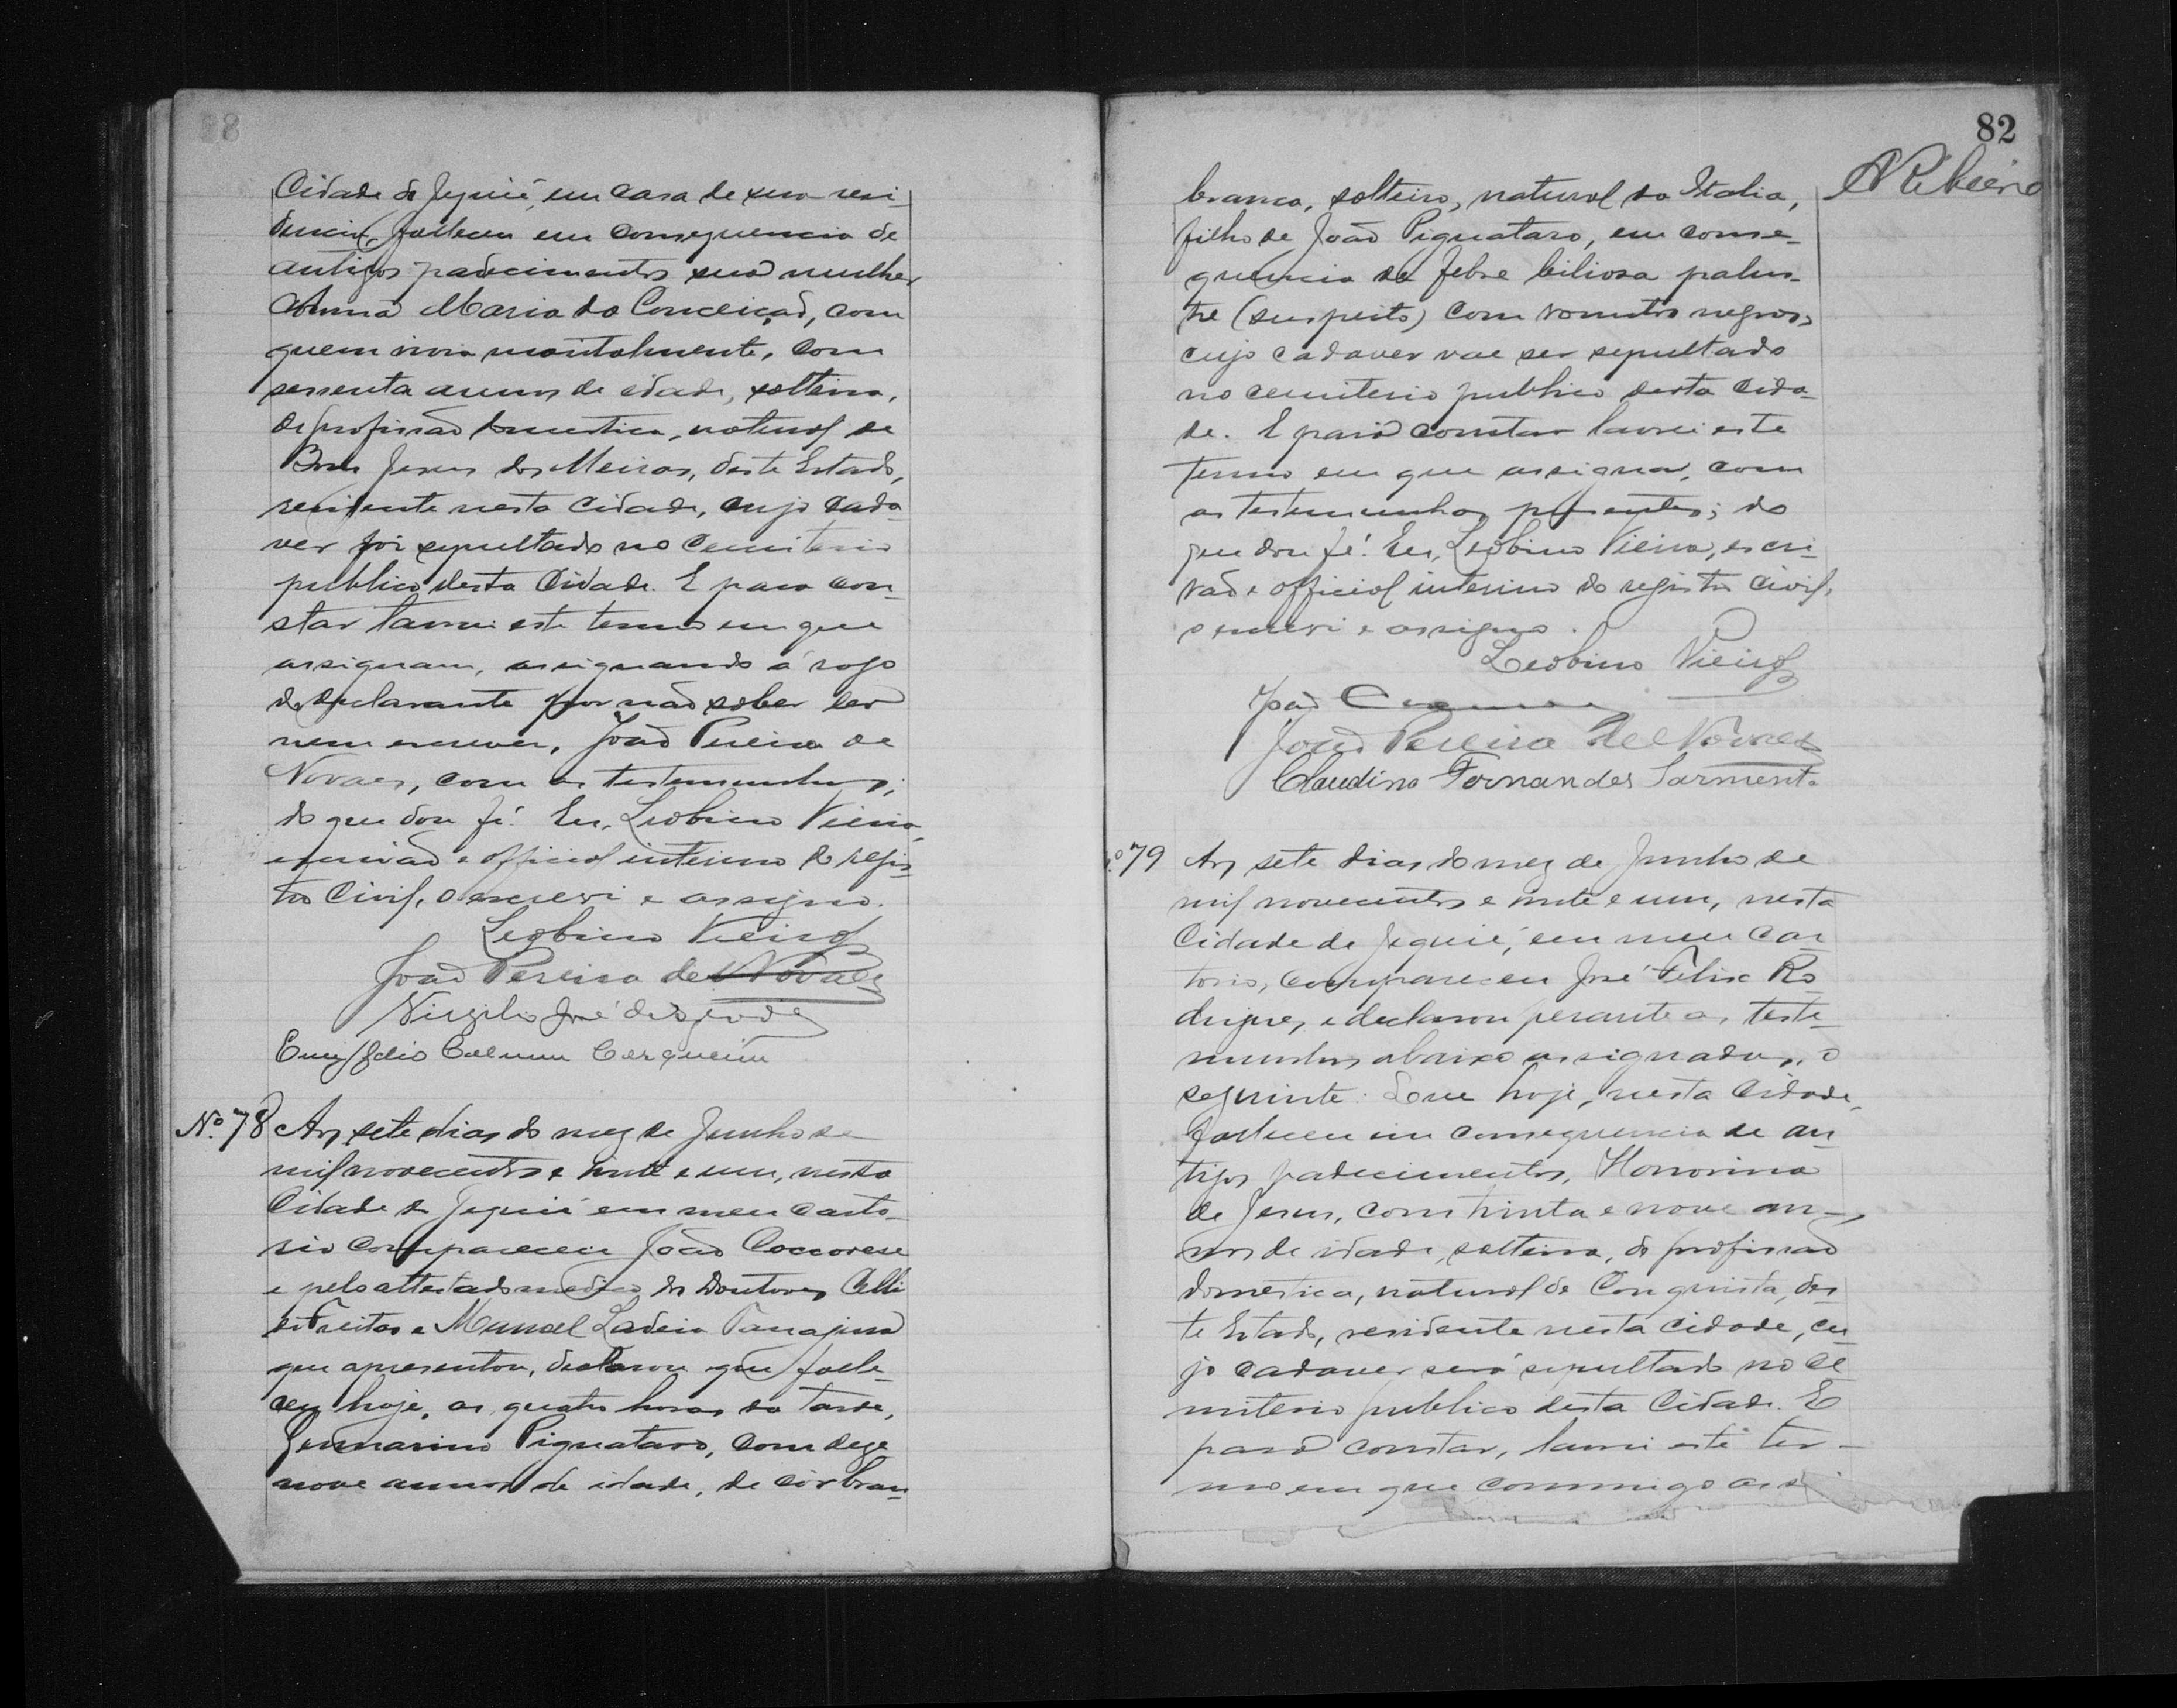 Cidade de Jequié, em casa de sua resi-
dencia, falleceu em consequencia de
antigos padecimentos sua mulher
Anna Maria da Conceição, com
quem vivia maritalmente, com
sessenta annos de idade, solteira,
de profissão domestica, natural de
Bom Jesus dos Meiras, deste Estado,
residente nesta cidade, cujo cada-
ver foi sepultado no Cemiterio
publico desta Cidade. E para con-
star lavrei este termo em que
assignam, assignando á rogo
do declarante por não saber ler
nem escrever, João Pereira de
Novaes, com as testemunhas;
do que dou fé. Eu, Leobino Vieira,
escrivão e official interino do regis-
tro Civil, o escrevi e assigno.
Leobino Vieira
João Pereira de Novaes
Virgilio José
Cerqueira
Nº 78 Aos sete dias do mez de Junho de
mil novecentos e vinte e um, nesta
Cidade de Jequié em meu carto-
rio compareceu João Coccorese
e pelo attestado medico dos Doutores
de Freitas e Manoel Ladeia Tanajura
que apresentou, declarou que falle-
ceu hoje, as quatro horas da tarde,
Gennarino Pignataro, com deze
nove annos de idade, de côr bran-
82
A Ribeiro
branca, solteiro, natural da Italia,
filho de João Pignataro, em conse-
quencia de febre biliosa palus-
tre (suspeito) com vomitos negros,
cujo cadaver vae ser sepultado
no cemiterio publico desta cida-
de. E para constar lavrei este
termo em que assigna, com
as testemunhas presentes; do
que dou fé. Eu, Leobino Vieira, escri-
vão e official interino do registro civil,
o escrevi e assigno.
Leobino Vieira
João
João Pereira de Novaes
Claudino Fernandes Sarmento
º79 Aos sete dias do mez de Junho de
mil novecentos e vinte e um, nesta
Cidade de Jequié, em meu car
torio, compareceu José Felix Ro
drigues, e declarou perante as teste-
munhas abaixo assignadas, o
seguinte: Que hoje, nesta Cidade,
falleceu em consequencia de an-
tigos padecimentos, Honorina
de Jesus, com trinta e nove an-
nos de idade, solteira, de profissão
domestica, natural de Conquista, des-
te Estado, residente nesta cidade, cu-
jo cadaver será sepultado no ce-
miterio publico desta Cidade. E
para constar, lavrei este ter-
mo em que commigo assi